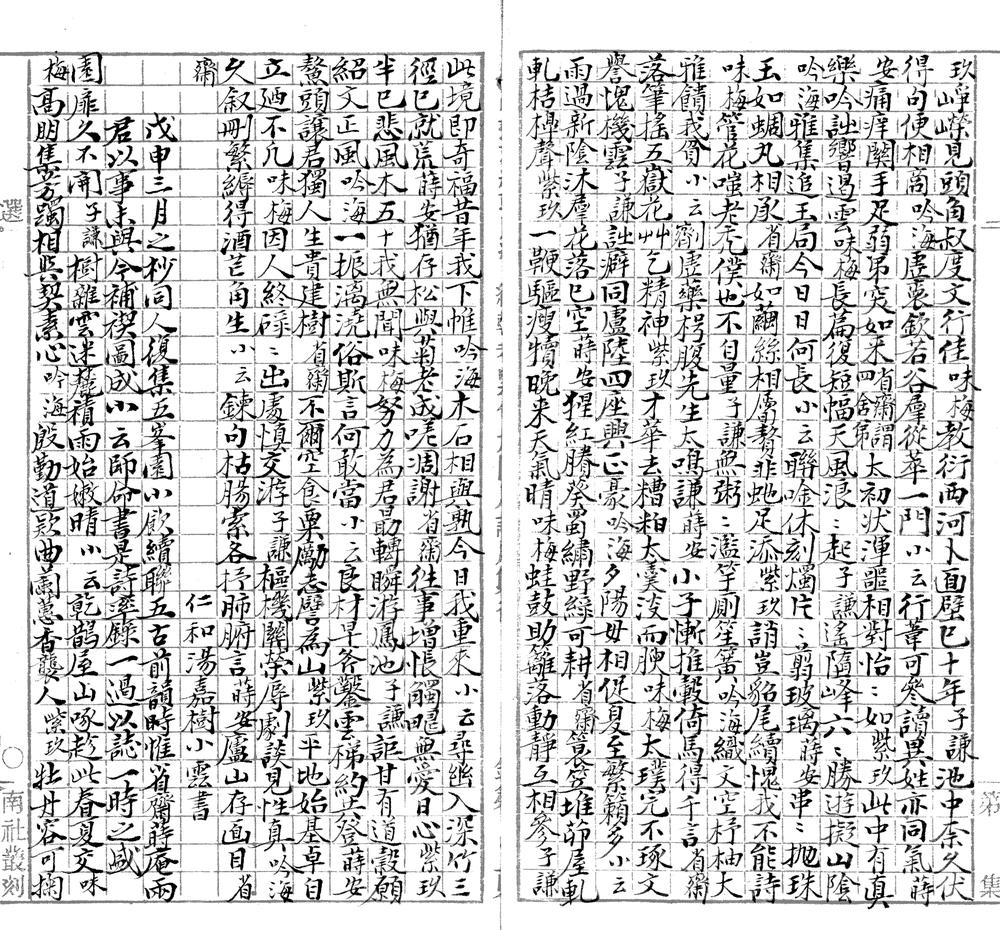 玖崢嶸見頭角叔度文行佳味梅教衍西河卜面壁已十年子謙池中奈久伏
得句便相商吟海虛衷欽若谷羣從萃一門小云行葦可參讀異姓亦同氣蒔
安痛癢關手足弱弟突如來省齋謂四舍弟太初狀渾噩相對怡〻如紫玖此中有真
樂吟詘響遏雲味梅長篇復短幅天風浪〻起子謙遙隔峰六〻勝遊擬山陰
吟海雅集追玉局今日日何長小云聯唫休刻燭片〻翦玻璃蒔安串〻拋珠
玉如蜩丸相承省齋如繭絲相屬贅非虵足添紫玖誚豈貂尾續愧我不能詩
味梅管花嗤老禿僕也不自量子謙無粥〻濫竽廁笙簧吟海織文空杼柚大
雅饋我貧小云劑虛藥枵腹先生太鳴謙蒔安小子慚推轂倚馬得千言省齋
落筆搖五嶽花艸乞精神紫玖才華去糟粕太羹沒而腴味梅太璞完不琢文
譽愧機雲子謙詘癖同盧陸四座興正豪吟海夕陽毋相促夏至繁賴多小云
雨過新陰沐羣花落已空蒔安猩紅賸癸蜀繡野綠可耕省齋簑笠堆茆屋軋
軋桔槔聲紫玖一鞭驅瘦犢晚來天氣晴味梅蛙鼓助籬落動靜互相參子謙
此境即奇福昔年我下帷吟海木石相與孰今日我重來小云尋幽入深竹三
徑已就荒蒔安猶存松與菊老成嗟凋謝省齋往事增悵觸黽無愛日心紫玖
半已悲風木五十我無聞味梅努力為君勗轉瞬游鳳池子謙詎甘有道穀願
紹文正風吟海一振漓澆俗斯言何敢當小云良材早斧鑿雲梯約共登蒔安
鰲頭讓君獨人生貴建樹省齋不爾空食粟勵志譬為山紫玖平地始基卓自
立迺不凡味梅因人終碌〻出處慎交游子謙樞機關榮辱劇談見性真吟海
久叙刪繁縟得酒芒角生小云鍊句枯腸索各抒肺腑言蒔安廬山存面目省
齋
仁和湯嘉樹小雲書
戊申三月之杪同人復集五峯園小飲續聯五古前韻時惟省齋蒔庵兩
君以事未與今補禊圖成小云師命書是詩率錄一過以誌一時之盛
園扉久不開子謙樹離雲迷麓積雨始嫩晴小云乾鵲屋山啄趁此春夏交味
梅高朋集芳躅相與契素心吟海殷勤道款曲蘭蕙香襲人紫玖牡丹容可掬
選
第　集
南社叢刻